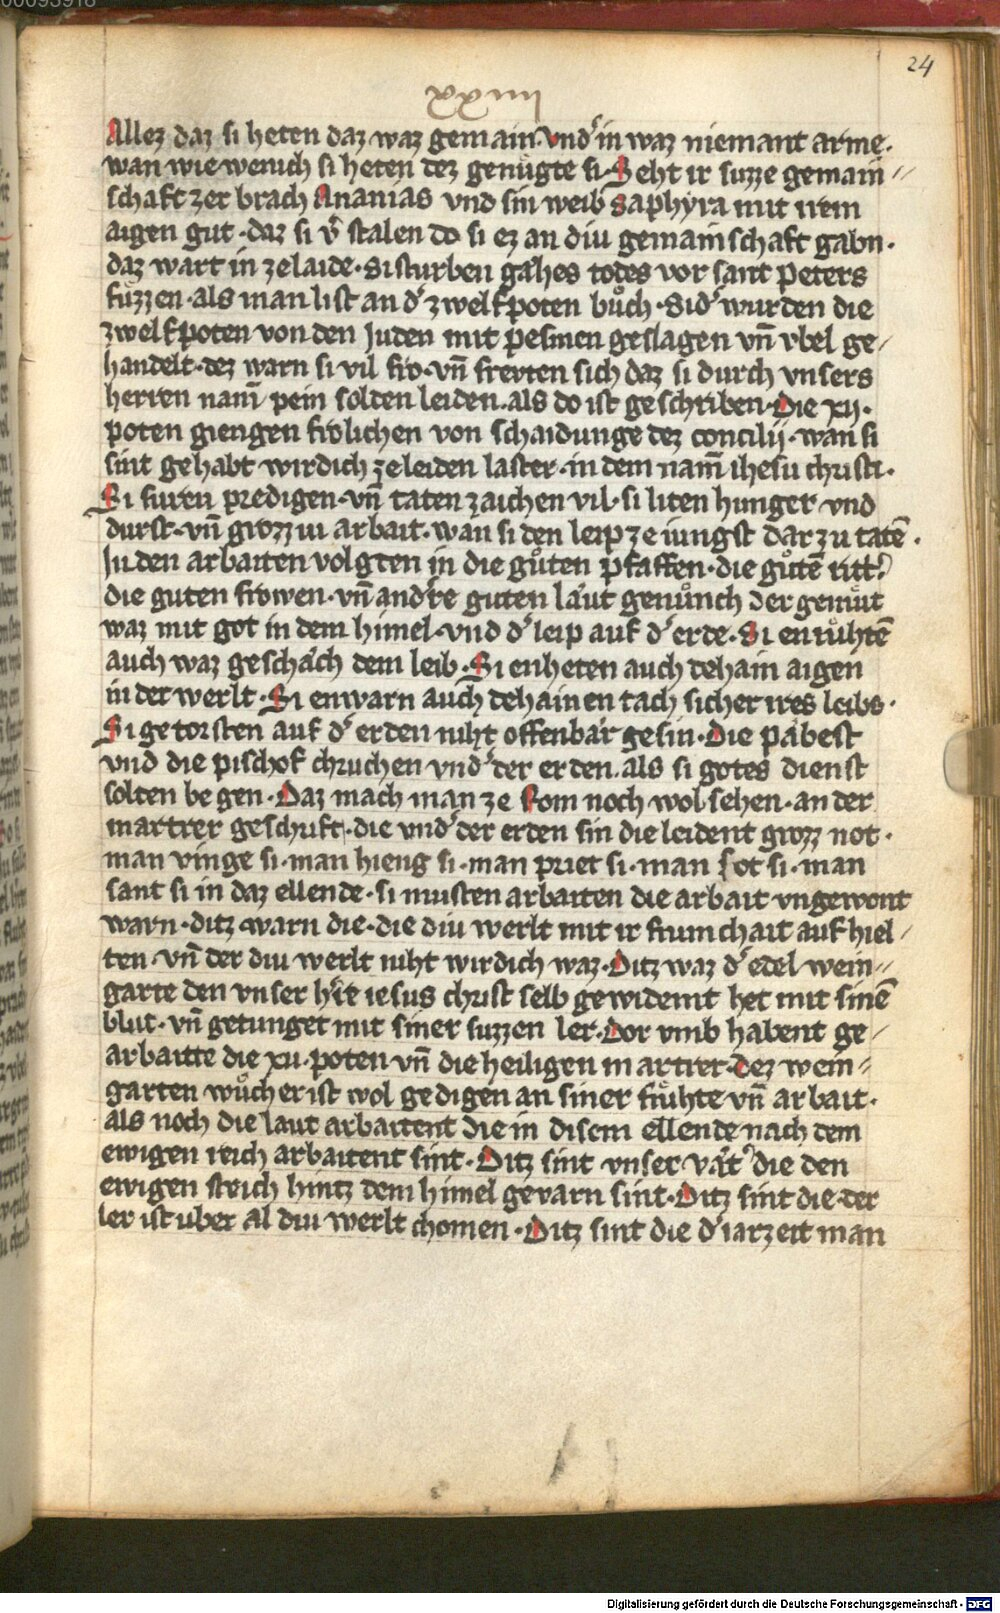 00093918
24
xxiiij
Allez daz si heten daz waz gemain · vnd͛ in waz niemant arme ·
wan wie wenich si heten dez genuͤgte si · Seht ir suzze gemain //
schaft zer brach Ananias vnd sin weib saphyra mit irem
aigen gut · daz si v͛ stalen do si ez an diu gemainschaft gabn ·
daz wart in zelaide · Si sturben gaͤhes todes vor sant peters
fuͤzzen · als man list an d͛ zwelfpoten buͦch · Sid͛ wurden die
zwelfpoten von den Juden mit pesmen geslagen vn̄ vbel ge /
handelt · dez warn si vil fro · vn̄ frevten sich daz si durch vnsers
herren nam̄ pein solden leiden · als do ist geschriben · Die xij ·
poten giengen frolichen von schaidunge dez concilij · wan si
sint gehabt wirdich zeleiden laster · in dem nam̄ ihesu christi ·
Si furen predigen · vn̄ taten zaichen vil · si liten hunger vnd
durst · vn̄ grozziu arbait · wan si den leip ze iungst dar zu tatē ·
In den arbaiten volgten in die guͦten pfaffen · die guͦtē ritt͛
die guten frowen · vn̄ and͛re guten laͤut genuͦnch der gemuͤt
waz mit got in dem himel · vnd d͛ leip auf d͛ erde · Si enruͦhtē
auch waz geschaͤch dem leib · Si enheten auch dehain aigen
in der werlt · Si enwarn auch dehainen tach sicher ires leibs ·
Si getorsten auf d͛ erden niht offenbaͤr gesin · Die paͤbest
vnd die pischof chruchen vnd͛ der erden · als si gotes dienst
solten began · Daz mach man ze Rom noch wol sehen · an der
martrer geschrift · die vnd͛ der erden sin die leident grozz not ·
man vinge si · man hieng si · man priet si · man sot si · man
sant si in daz ellende · si musten arbaiten die arbait vngewont
warn · ditz warn die · die diu werlt mit ir frumchait auf hiel /
ten · vn̄ der diu werlt niht wirdich waz · Ditz waz d͛ edel wein //
garte den vnser h͛re iesus christ selb gewidemt het mit sinē
blut · vn̄ getunget mit siner suzzen ler · Dor vmb habent ge /
arbaitte die xii · poten vn̄ die heiligen martrer · Dez wein //
garten wuͦcher ist wol gedigen an siner fruͤhte vn̄ arbait ·
als noch die laut arbaitent die in disem ellende nach dem
ewigen reich arbaitent sint · Ditz sint vnser vaͤt͛ die den
ewigen streich hintz dem himel gevarn sint · Ditz sint die der
ler ist uber al diu werlt chomen · Ditz sint die d͛ iarzeit man
Digitalisierung gefördert durch die Deutsche Forschungsgemeinschaft - DFG